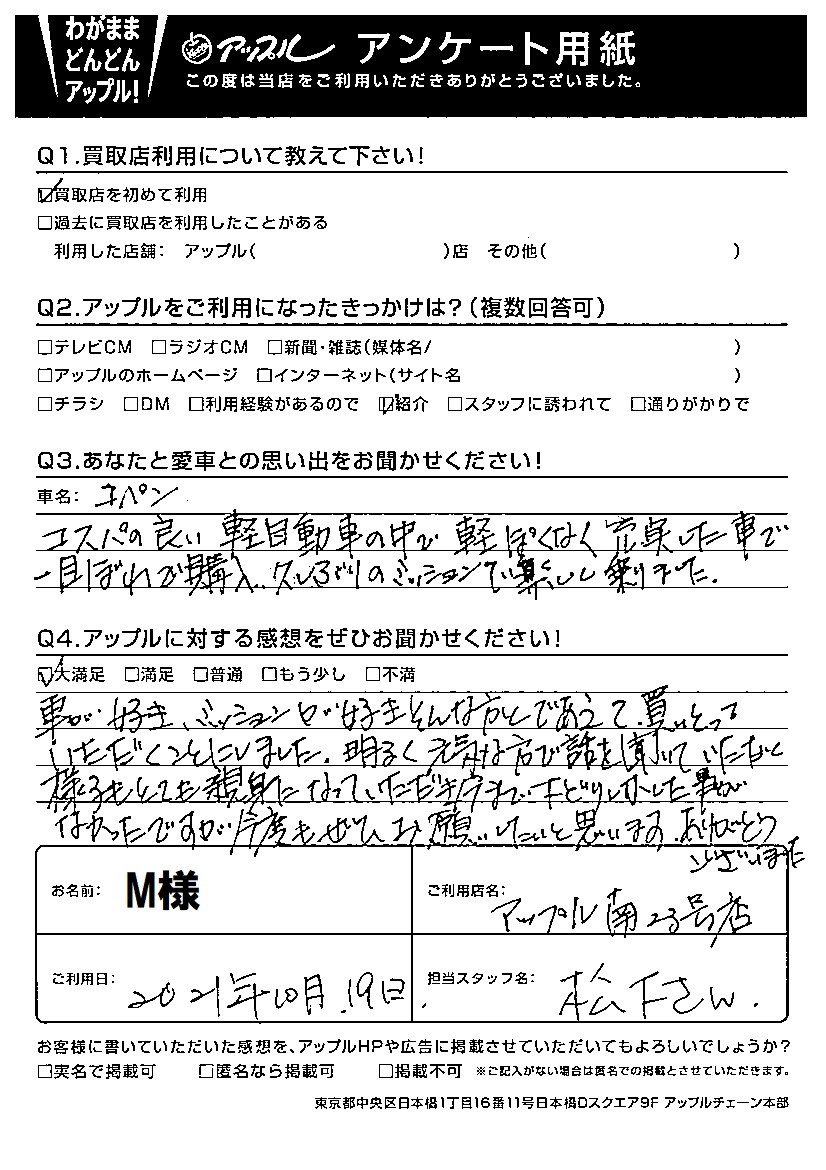 わがまま
どんどん
アップル!
アップル アンケート用紙
この度は当店をご利用いただきありがとうございました。
Q1.買取店利用について教えて下さい!
☑買取店を初めて利用
□過去に買取店を利用したことがある
利用した店舗: アップル( )店 その他( )
Q2.アップルをご利用になったきっかけは?(複数回答可)
□テレビCM □ラジオCM □新聞・雑誌(媒体名/ )
□アップルのホームページ □インターネット(サイト名 )
□チラシ □DM □利用経験があるので ☑紹介 □スタッフに誘われて □通りがかりで
Q3.あなたと愛車との思い出をお聞かせください!
車名: コペン
コスパの良い 軽自動車の中で 軽ぽくなく 充実した車で
一目ぼれで購入、久しぶりのミッションで楽しく乗りました.
Q4.アップルに対する感想をぜひお聞かせください!
☑大満足 □満足 □普通 □もう少し □不満
車が好き、ミッションが好きそんな方とであえて、買いとって
いただくことにしました. 明るく元気な方で話を聞いていただく
様子もとても親身になっていただき今まで下どりしかした事が
なかったですが今度もぜひお願いしたいと思います ありがとう
ございました
お名前: M様
ご利用店名: アップル南23号店
ご利用日: 2021年10月.19日.
担当スタッフ名: 松下さん.
お客様に書いていただいた感想を、アップルHPや広告に掲載させていただいてもよろしいでしょうか?
□実名で掲載可 □匿名なら掲載可 □掲載不可 ※ご記入がない場合は匿名での掲載とさせていただきます。
東京都中央区日本橋1丁目16番11号日本橋Dスクエア9F アップルチェーン本部